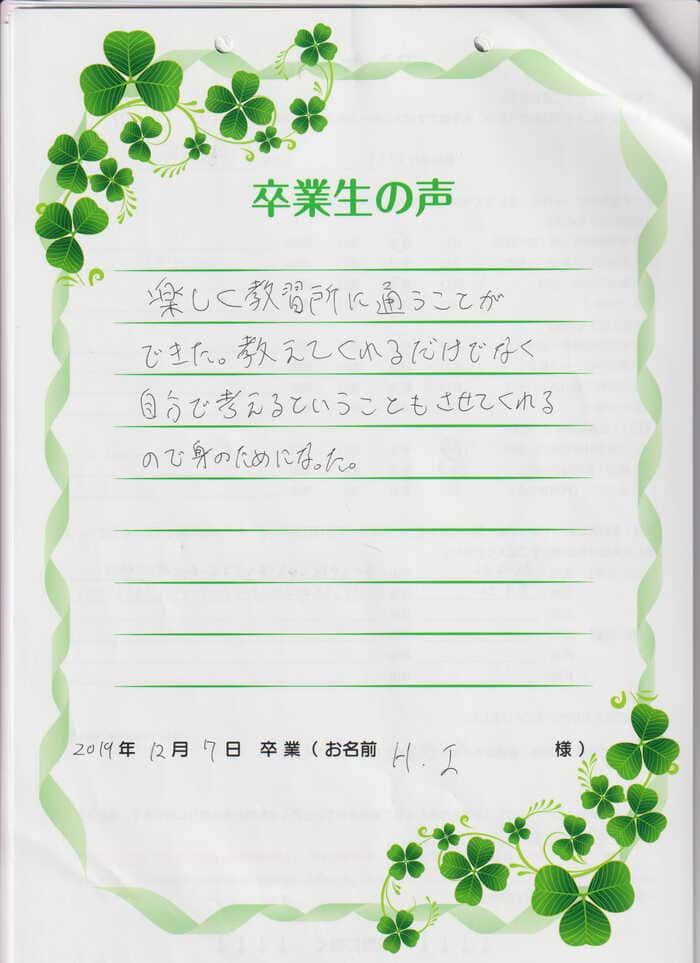 卒業生の声
楽しく教習所に通うことが
できた。教えてくれるだけでなく
自分で考えるということもさせてくれる
ので身のためになった。
2019年 12月 7日 卒業(お名前 H.I 様)